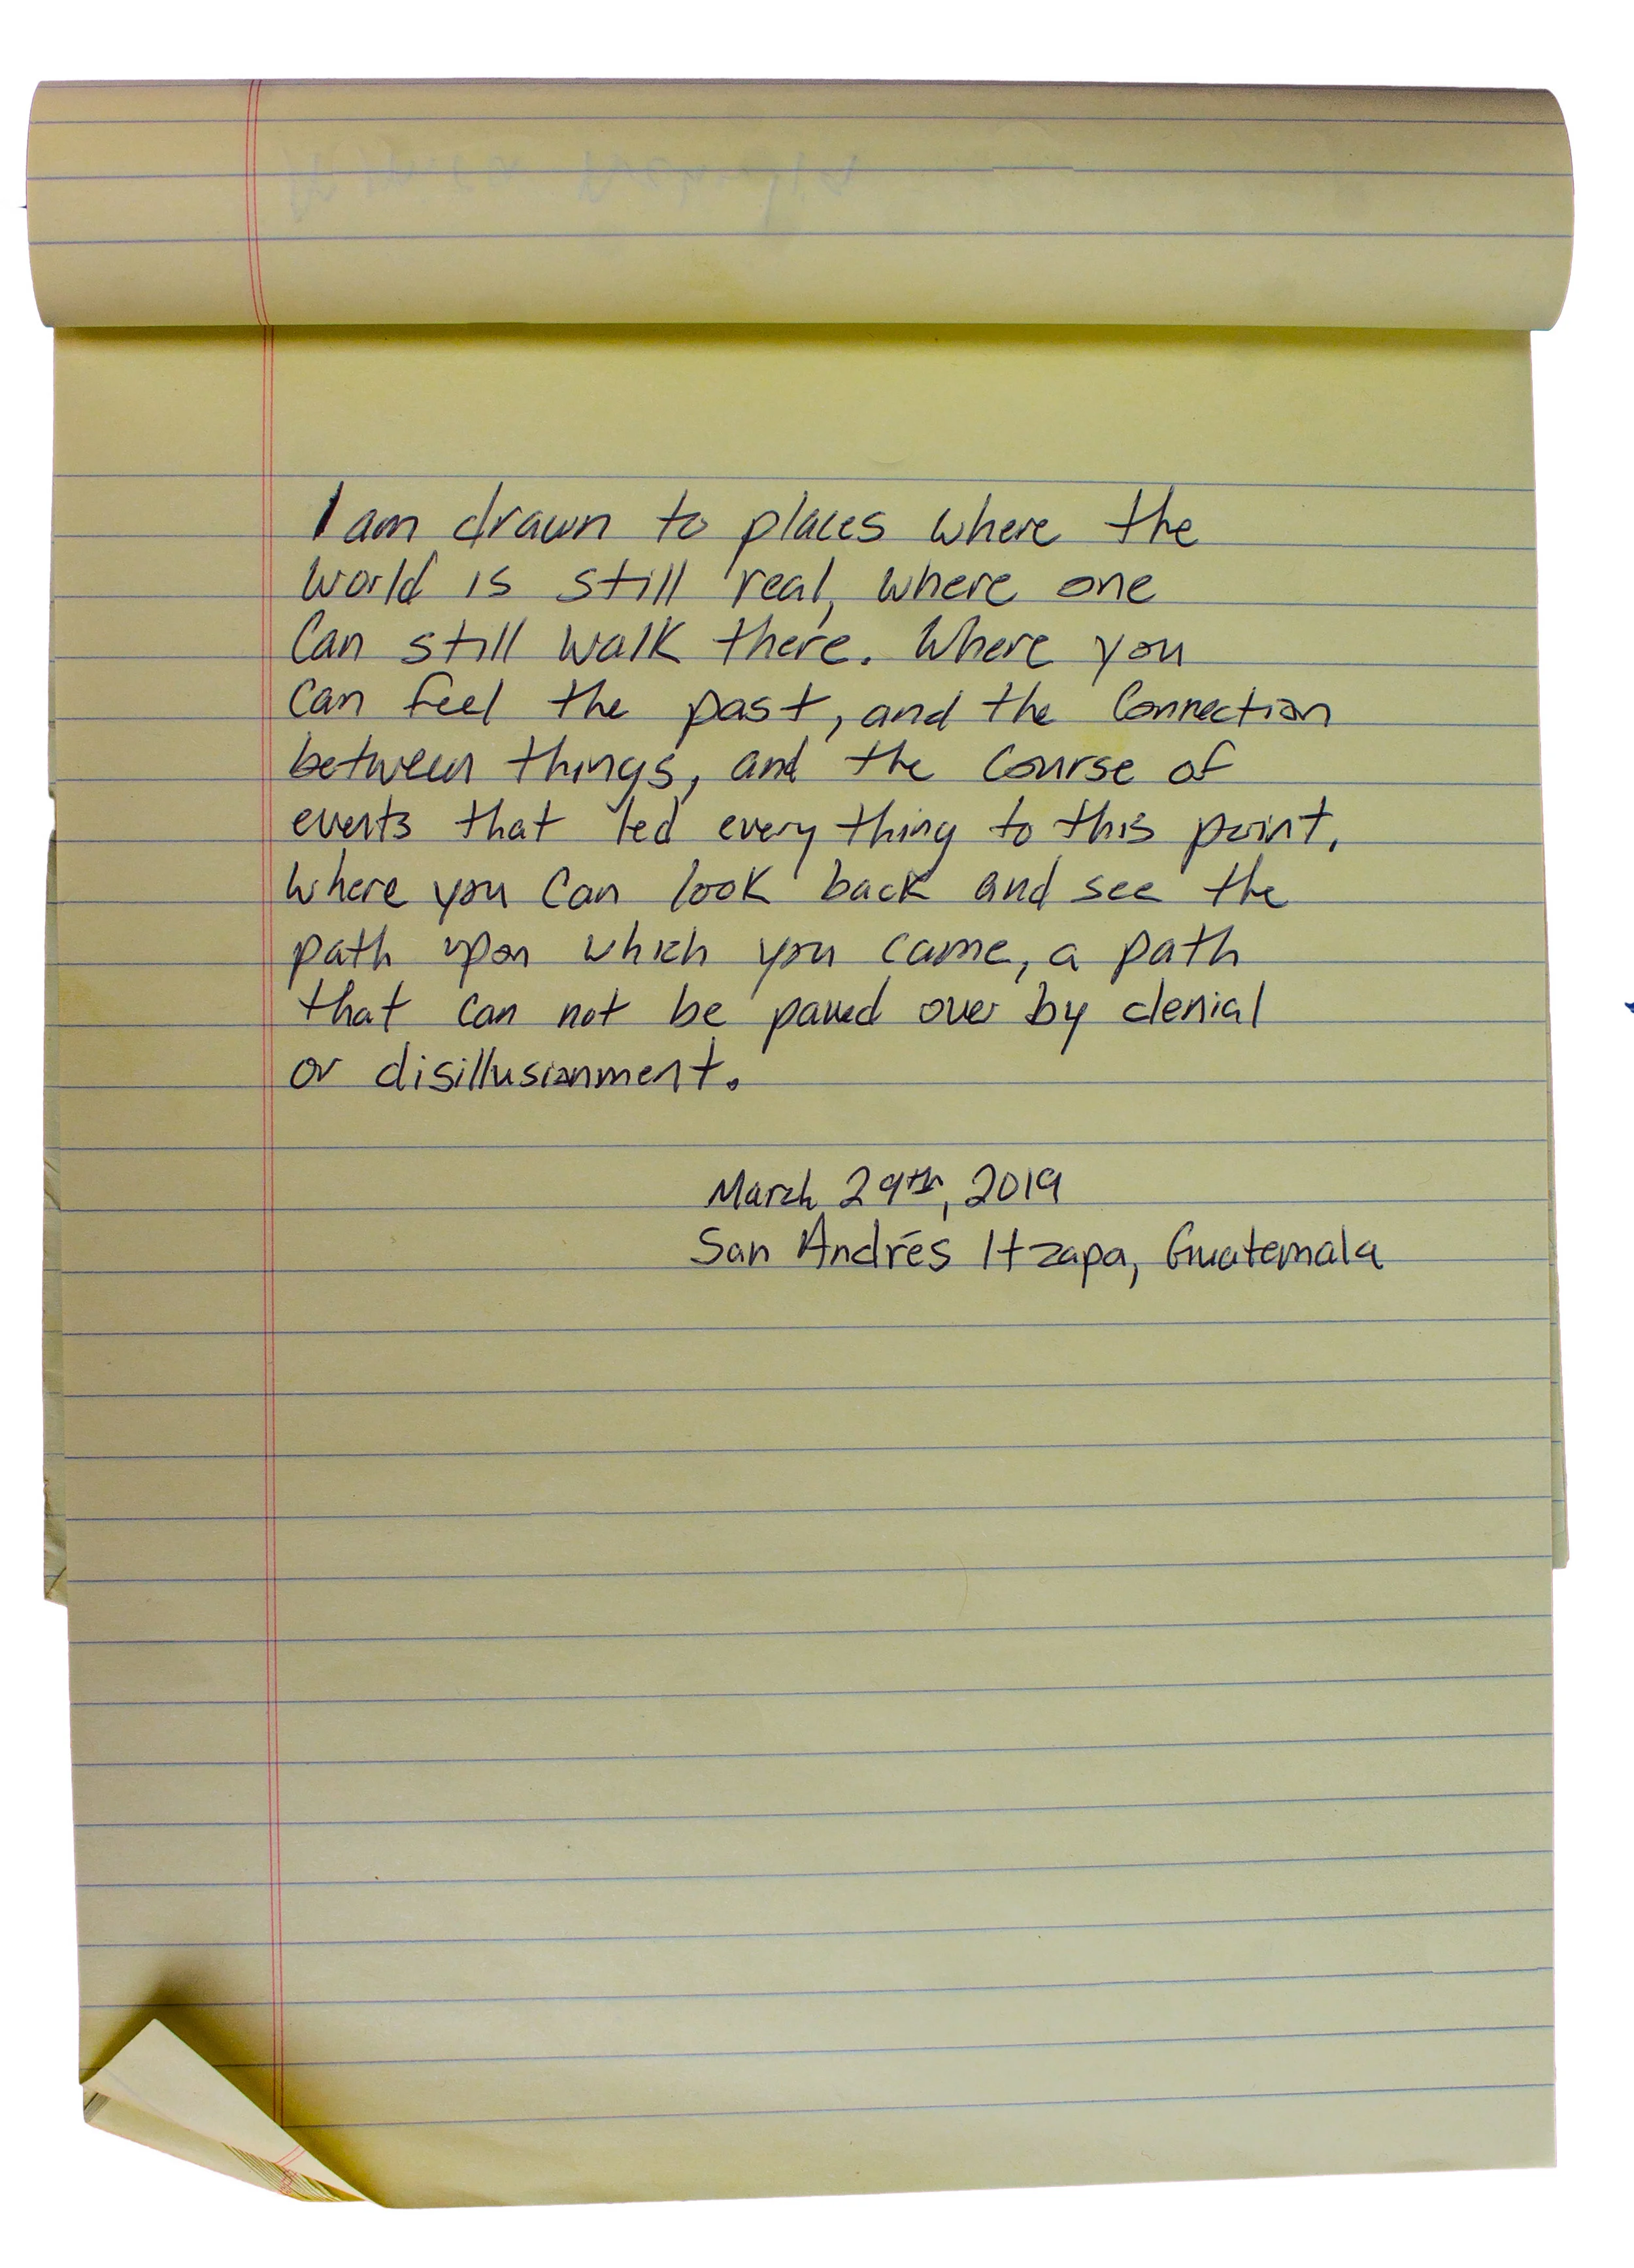 I am drawn to places where the
world is still real, where one
can still walk there. Where you
can feel the past, and the connection
between things, and the course of
events that led everything to this point,
where you can look back and see the
path upon which you came, a path
that can not be paved over by denial
or disillusionment.
March 29th, 2019
San Andrés Itzapa, Guatemala